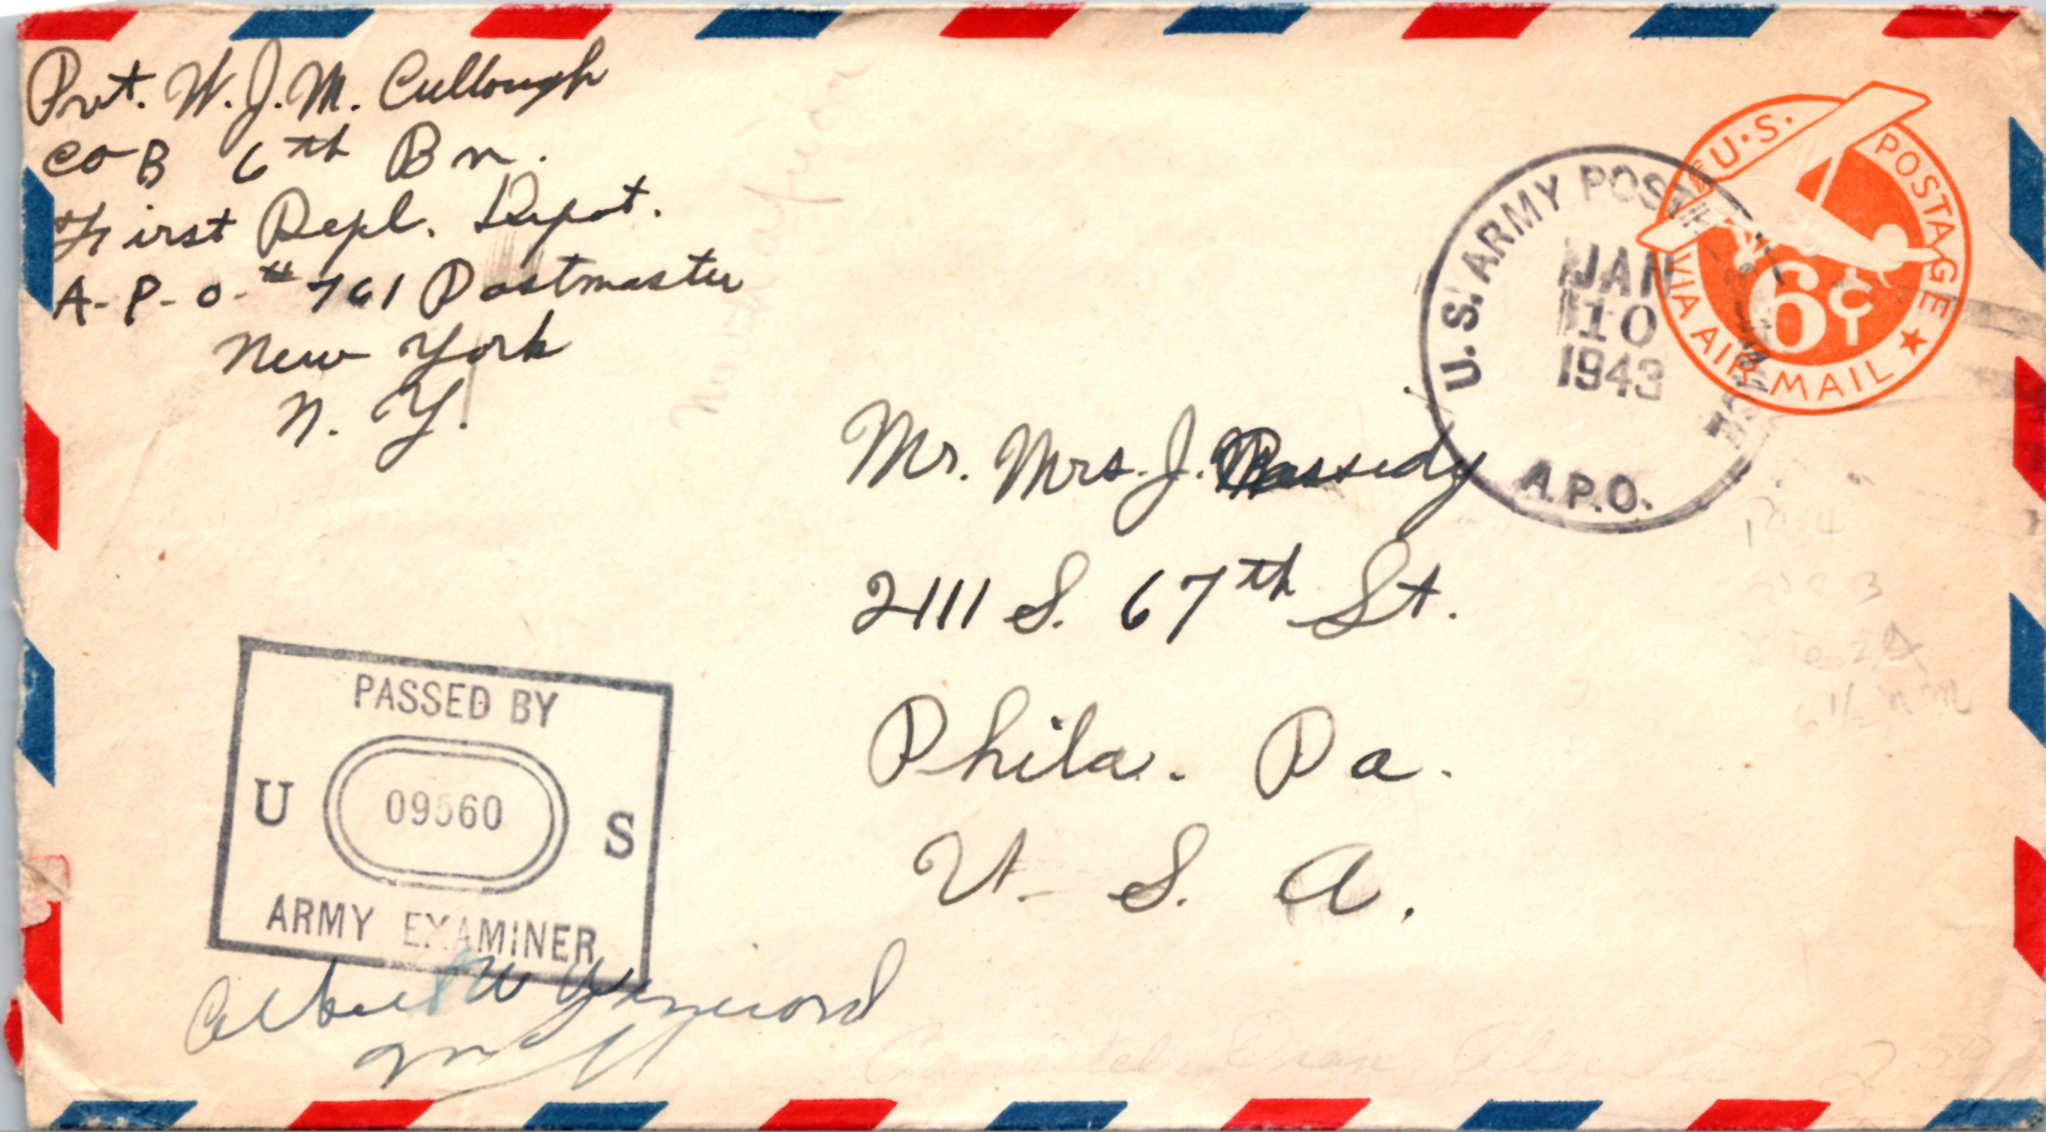 Pvt. W. J. M. Cullough
Co B 6th Bn.
First Repl. Depot.
A-P-O-# 761 Postmaster
New York
N. Y.
U.S. POSTAGE
VIA AIR MAIL
6¢
U.S. ARMY POSTAL
JAN
10
1943
A.P.O.
Mr. Mrs. J. Cassedy
2111 S. 67th St.
Phila. Pa.
U. S. A.
PASSED BY
U 09560 S
ARMY EXAMINER
Albert W
6 1/2